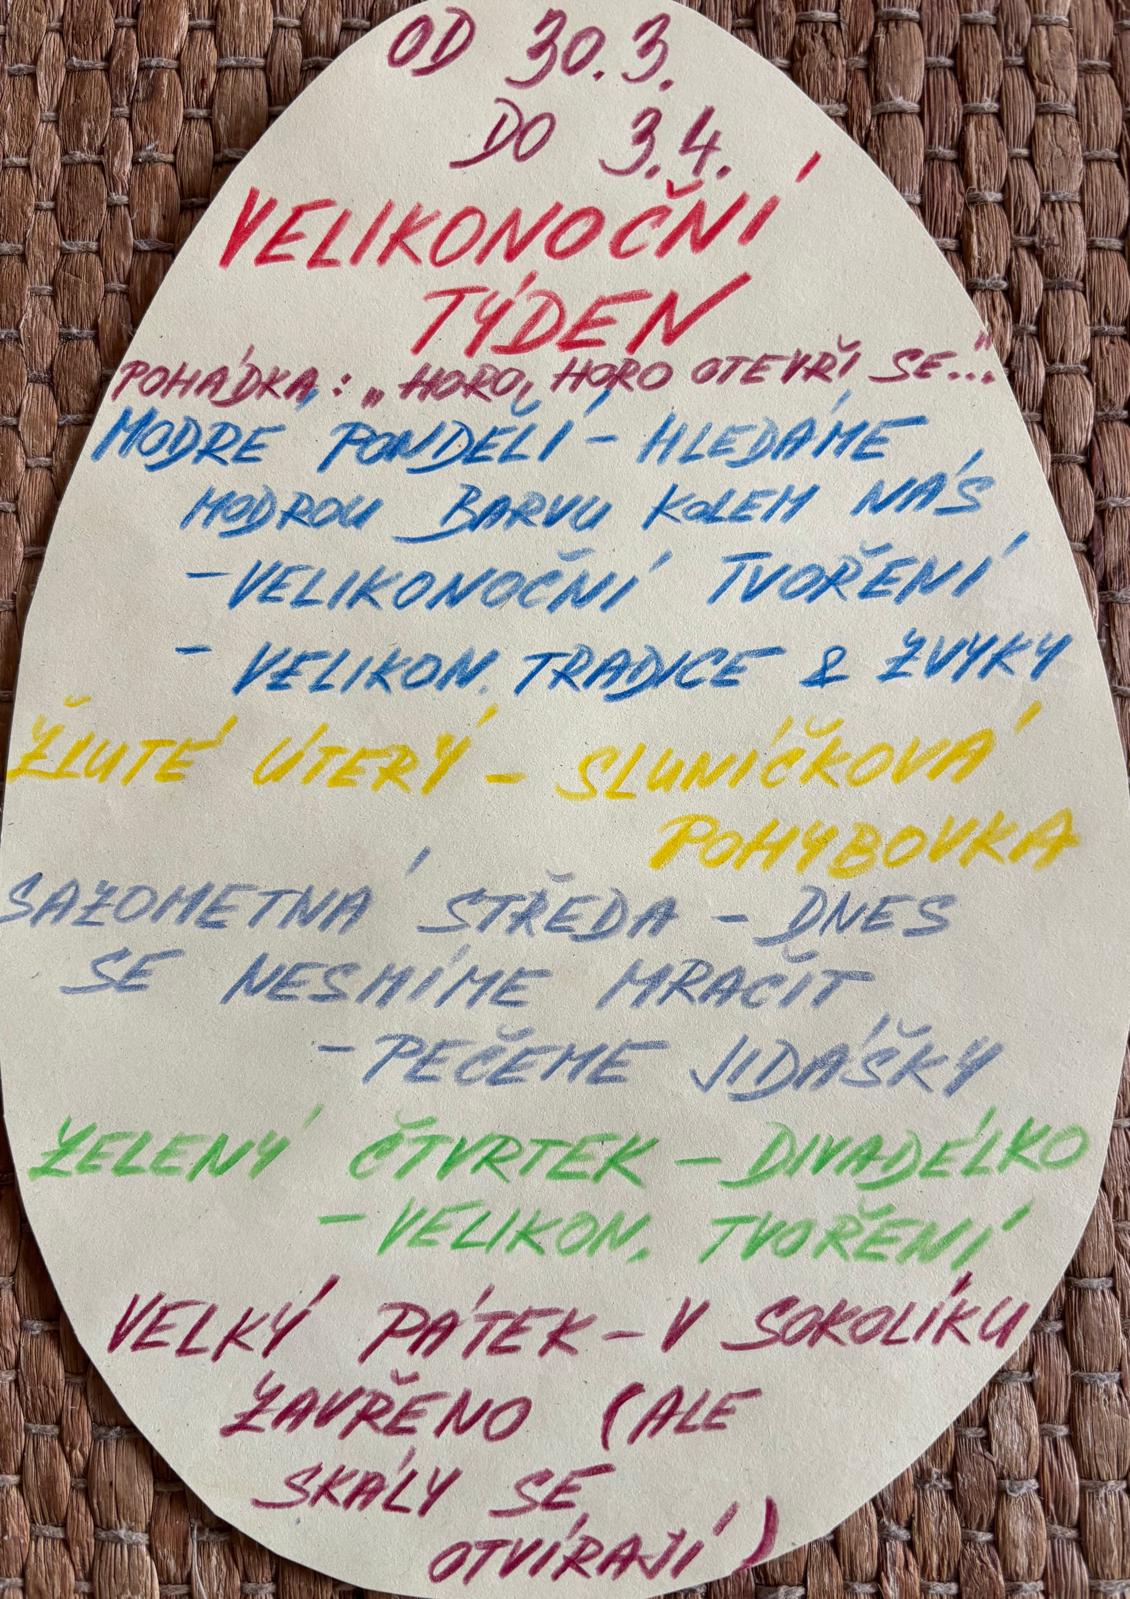 OD 30.3.
DO 3.4.
VELIKONOČNÍ
TÝDEN
POHÁDKA: „HORO, HORO OTEVŘI SE..."
MODRÉ PONDĚLÍ - HLEDÁME
MODROU BARVU KOLEM NÁS
- VELIKONOČNÍ TVOŘENÍ
- VELIKON. TRADICE & ZVYKY
ŽLUTÉ ÚTERÝ - SLUNÍČKOVÁ
POHYBOVKA
SAZOMETNÁ STŘEDA - DNES
SE NESMÍME MRAČIT
- PEČEME JIDÁŠKY
ZELENÝ ČTVRTEK - DIVADÉLKO
- VELIKON. TVOŘENÍ
VELKÝ PÁTEK - V SOKOLÍKU
ZAVŘENO (ALE
SKÁLY SE
OTVÍRAJÍ)